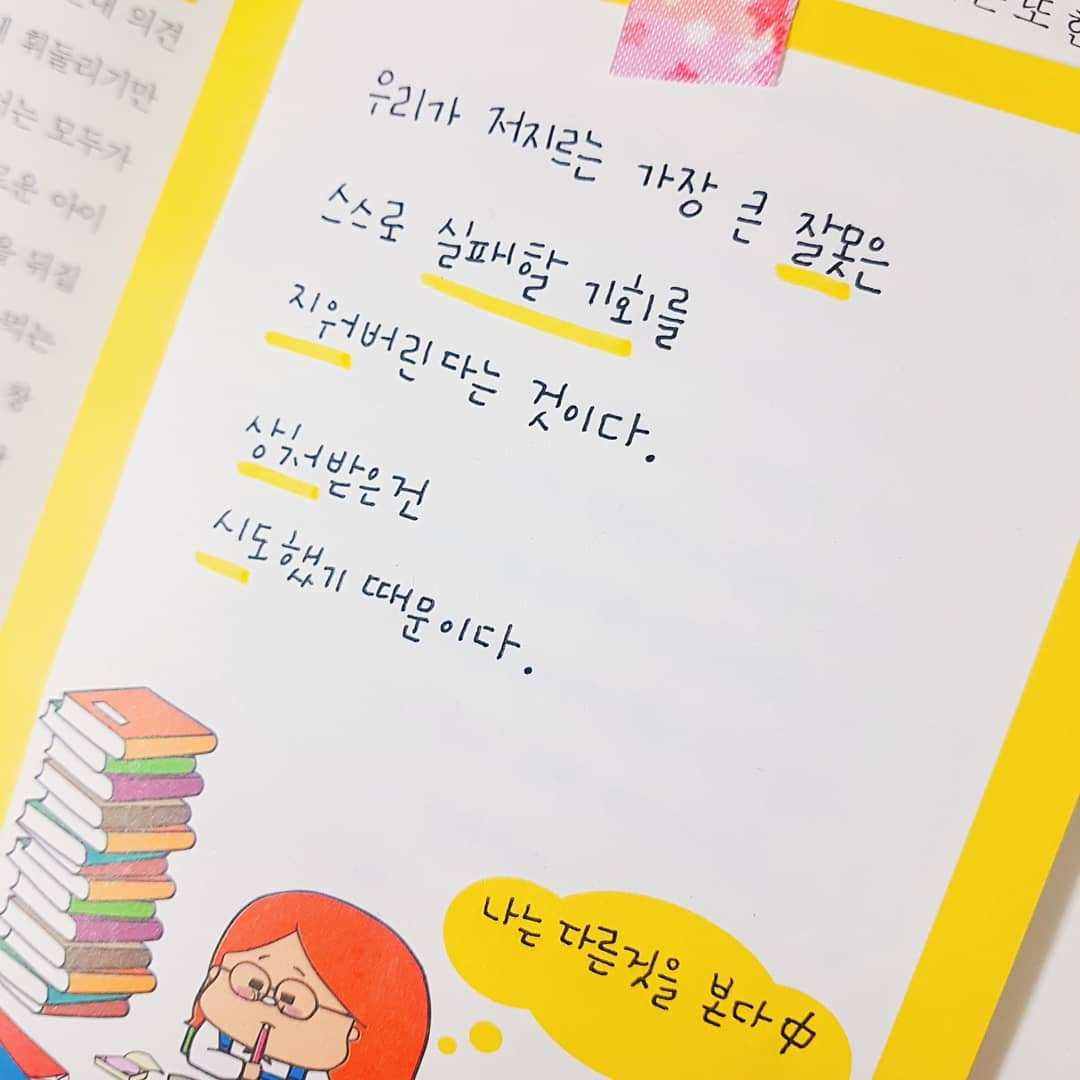 의견
휘둘리기만
는 모두가
아이
뒤집
먹는
또
우리가 저지르는 가장 큰 잘못은
스스로 실패할 기회를
지워버린다는 것이다.
상처받은건
시도했기 때문이다.
나는 다른것을 본다中